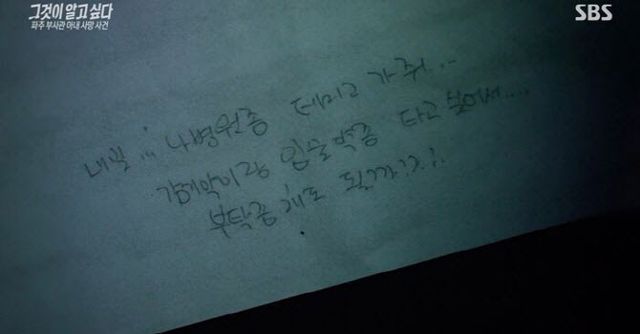 그것이 알고 싶다
파주 부사관 아내 사망 사건
SBS
내일... 나 병원좀 데리고 가줘...
감기약이랑 입술약좀 타고 싶어서....
부탁좀 해도 될까?!